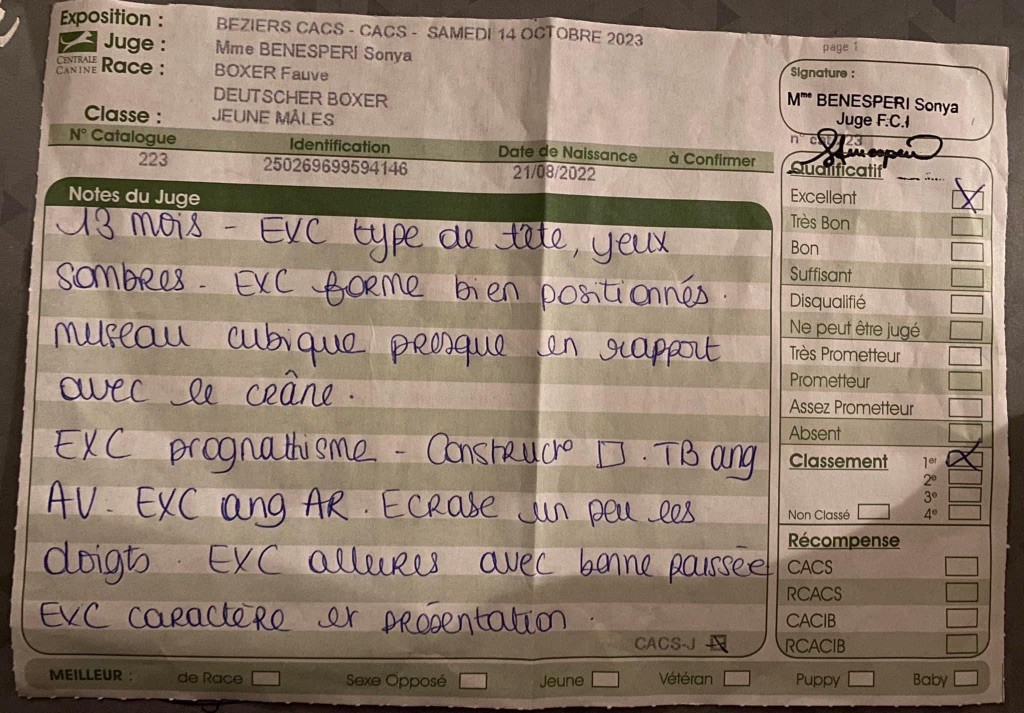 Exposition : BEZIERS CACS - CACS - SAMEDI 14 OCTOBRE 2023
page 1
CENTRALE CANINE
Juge : Mme BENESPERI Sonya
Race : BOXER Fauve
DEUTSCHER BOXER
Classe : JEUNE MÂLES
Signature :
Mme BENESPERI Sonya
Juge F.C.I
N° Catalogue Identification Date de Naissance à Confirmer
223 250269699594146 21/08/2022
Notes du Juge
13 mois - EXC type de tête, yeux
sombres. EXC forme bien positionnés.
museau cubique presque en rapport
avec le crâne.
EXC prognathisme - Construc° □. TB ang
AV. EXC ang AR. ECRASE un peu les
doigts. EXC allures avec bonne
EXC caractère et présentation.
CACS-J
Qualificatif
Excellent
Très Bon
Bon
Suffisant
Disqualifié
Ne peut être jugé
Très Prometteur
Prometteur
Assez Prometteur
Absent
Classement 1er
2e
3e
Non Classé 4e
Récompense
CACS
RCACS
CACIB
RCACIB
MEILLEUR : de Race Sexe Opposé Jeune Vétéran Puppy Baby